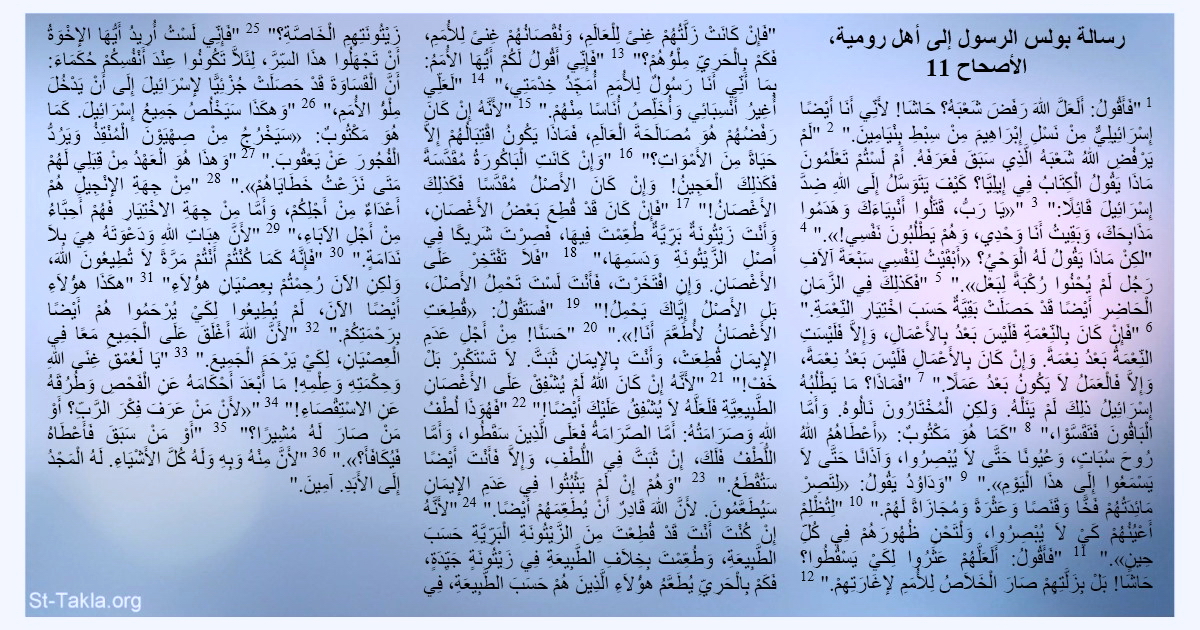 رسالة بولس الرسول إلى أهل رومية،
الأصحاح 11
1 "فَأَقُولُ: أَلَعَلَّ اللهَ رَفَضَ شَعْبَهُ؟ حَاشَا! لأَنِّي أَنَا أَيْضًا
إِسْرَائِيلِيٌّ مِنْ نَسْلِ إِبْرَاهِيمَ مِنْ سِبْطِ بِنْيَامِينَ." 2 "لَمْ
يَرْفُضِ اللهُ شَعْبَهُ الَّذِي سَبَقَ فَعَرَفَهُ. أَمْ لَسْتُمْ تَعْلَمُونَ
مَاذَا يَقُولُ الْكِتَابُ فِي إِيلِيَّا؟ كَيْفَ يَتَوَسَّلُ إِلَى اللهِ ضِدَّ
إِسْرَائِيلَ قَائِلًا:" 3 "«يَا رَبُّ، قَتَلُوا أَنْبِيَاءَكَ وَهَدَمُوا
مَذَابِحَكَ، وَبَقِيتُ أَنَا وَحْدِي، وَهُمْ يَطْلُبُونَ نَفْسِي!»." 4
"لكِنْ مَاذَا يَقُولُ لَهُ الْوَحْيُ؟ «أَبْقَيْتُ لِنَفْسِي سَبْعَةَ آلاَفِ
رَجُل لَمْ يُحْنُوا رُكْبَةً لِبَعْل»." 5 "فَكَذلِكَ فِي الزَّمَانِ
الْحَاضِرِ أَيْضًا قَدْ حَصَلَتْ بَقِيَّةٌ حَسَبَ اخْتِيَارِ النِّعْمَةِ."
6 "فَإِنْ كَانَ بِالنِّعْمَةِ فَلَيْسَ بَعْدُ بِالأَعْمَالِ، وَإِلاَّ فَلَيْسَتِ
النِّعْمَةُ بَعْدُ نِعْمَةً. وَإِنْ كَانَ بِالأَعْمَالِ فَلَيْسَ بَعْدُ نِعْمَةً،
وَإِلاَّ فَالْعَمَلُ لاَ يَكُونُ بَعْدُ عَمَلًا." 7 "فَمَاذَا؟ مَا يَطْلُبُهُ
إِسْرَائِيلُ ذلِكَ لَمْ يَنَلْهُ. وَلكِنِ الْمُخْتَارُونَ نَالُوهُ. وَأَمَّا
الْبَاقُونَ فَتَقَسَّوْا،" 8 "كَمَا هُوَ مَكْتُوبٌ: «أَعْطَاهُمُ اللهُ
رُوحَ سُبَاتٍ، وَعُيُونًا حَتَّى لاَ يُبْصِرُوا، وَآذَانًا حَتَّى لاَ
يَسْمَعُوا إِلَى هذَا الْيَوْمِ»." 9 "وَدَاوُدُ يَقُولُ: «لِتَصِرْ
مَائِدَتُهُمْ فَخًّا وَقَنَصًا وَعَثْرَةً وَمُجَازَاةً لَهُمْ." 10 "لِتُظْلِمْ
أَعْيُنُهُمْ كَيْ لاَ يُبْصِرُوا، وَلْتَحْنِ ظُهُورَهُمْ فِي كُلِّ
حِينٍ»." 11 "فَأَقُولُ: أَلَعَلَّهُمْ عَثَرُوا لِكَيْ يَسْقُطُوا؟
حَاشَا! بَلْ بِزَلَّتِهِمْ صَارَ الْخَلاَصُ لِلأُمَمِ لإِغَارَتِهِمْ." 12
"فَإِنْ كَانَتْ زَلَّتُهُمْ غِنىً لِلْعَالَمِ، وَنُقْصَانُهُمْ غِنىً لِلأُمَمِ،
فَكَمْ بِالْحَرِيِّ مِلْؤُهُمْ؟" 13 "فَإِنِّي أَقُولُ لَكُمْ أَيُّهَا الأُمَمُ:
بِمَا أَنِّي أَنَا رَسُولٌ لِلأُمَمِ أُمَجِّدُ خِدْمَتِي،" 14 "لَعَلِّي
أُغِيرُ أَنْسِبَائِي وَأُخَلِّصُ أُنَاسًا مِنْهُمْ." 15 "لأَنَّهُ إِنْ كَانَ
رَفْضُهُمْ هُوَ مُصَالَحَةَ الْعَالَمِ، فَمَاذَا يَكُونُ اقْتِبَالُهُمْ إِلاَّ
حَيَاةً مِنَ الأَمْوَاتِ؟" 16 "وَإِنْ كَانَتِ الْبَاكُورَةُ مُقَدَّسَةً
فَكَذلِكَ الْعَجِينُ! وَإِنْ كَانَ الأَصْلُ مُقَدَّسًا فَكَذلِكَ
الأَغْصَانُ!" 17 "فَإِنْ كَانَ قَدْ قُطِعَ بَعْضُ الأَغْصَانِ،
وَأَنْتَ زَيْتُونَةٌ بَرِّيَّةٌ طُعِّمْتَ فِيهَا، فَصِرْتَ شَرِيكًا فِي
أَصْلِ الزَّيْتُونَةِ وَدَسَمِهَا،" 18 "فَلاَ تَفْتَخِرْ عَلَى
الأَغْصَانِ. وَإِنِ افْتَخَرْتَ، فَأَنْتَ لَسْتَ تَحْمِلُ الأَصْلَ،
بَلِ الأَصْلُ إِيَّاكَ يَحْمِلُ!" 19 "فَسَتَقُولُ: «قُطِعَتِ
الأَغْصَانُ لأُطَعَّمَ أَنَا!»." 20 "حَسَنًا! مِنْ أَجْلِ عَدَمِ
الإِيمَانِ قُطِعَتْ، وَأَنْتَ بِالإِيمَانِ ثَبَتَّ. لاَ تَسْتَكْبِرْ بَلْ
خَفْ!" 21 "لأَنَّهُ إِنْ كَانَ اللهُ لَمْ يُشْفِقْ عَلَى الأَغْصَانِ
الطَّبِيعِيَّةِ فَلَعَلَّهُ لاَ يُشْفِقُ عَلَيْكَ أَيْضًا!" 22 "فَهُوَذَا لُطْفُ
اللهِ وَصَرَامَتُهُ: أَمَّا الصَّرَامَةُ فَعَلَى الَّذِينَ سَقَطُوا، وَأَمَّا
اللُّطْفُ فَلَكَ، إِنْ ثَبَتَّ فِي اللُّطْفِ، وَإِلاَّ فَأَنْتَ أَيْضًا
سَتُقْطَعُ." 23 "وَهُمْ إِنْ لَمْ يَثْبُتُوا فِي عَدَمِ الإِيمَانِ
سَيُطَعَّمُونَ. لأَنَّ اللهَ قَادِرٌ أَنْ يُطَعِّمَهُمْ أَيْضًا." 24 "لأَنَّهُ
إِنْ كُنْتَ أَنْتَ قَدْ قُطِعْتَ مِنَ الزَّيْتُونَةِ الْبَرِّيَّةِ حَسَبَ
الطَّبِيعَةِ، وَطُعِّمْتَ بِخِلاَفِ الطَّبِيعَةِ فِي زَيْتُونَةٍ جَيِّدَةٍ،
فَكَمْ بِالْحَرِيِّ يُطَعَّمُ هؤُلاَءِ الَّذِينَ هُمْ حَسَبَ الطَّبِيعَةِ، فِي
زَيْتُونَتِهِمِ الْخَاصَّةِ؟" 25 "فَإِنِّي لَسْتُ أُرِيدُ أَيُّهَا الإِخْوَةُ
أَنْ تَجْهَلُوا هذَا السِّرَّ، لِئَلاَّ تَكُونُوا عِنْدَ أَنْفُسِكُمْ حُكَمَاءَ:
أَنَّ الْقَسَاوَةَ قَدْ حَصَلَتْ جُزْئِيًّا لإِسْرَائِيلَ إِلَى أَنْ يَدْخُلَ
مِلْؤُ الأُمَمِ،" 26 "وَهكَذَا سَيَخْلُصُ جَمِيعُ إِسْرَائِيلَ. كَمَا
هُوَ مَكْتُوبٌ: «سَيَخْرُجُ مِنْ صِهْيَوْنَ الْمُنْقِذُ وَيَرُدُّ
الْفُجُورَ عَنْ يَعْقُوبَ." 27 "وَهذَا هُوَ الْعَهْدُ مِنْ قِبَلِي لَهُمْ
مَتَى نَزَعْتُ خَطَايَاهُمْ»." 28 "مِنْ جِهَةِ الإِنْجِيلِ هُمْ
أَعْدَاءٌ مِنْ أَجْلِكُمْ، وَأَمَّا مِنْ جِهَةِ الاخْتِيَارِ فَهُمْ أَحِبَّاءُ
مِنْ أَجْلِ الآبَاءِ،" 29 "لأَنَّ هِبَاتِ اللهِ وَدَعْوَتَهُ هِيَ بِلاَ
نَدَامَةٍ." 30 "فَإِنَّهُ كَمَا كُنْتُمْ أَنْتُمْ مَرَّةً لاَ تُطِيعُونَ اللهَ،
وَلكِنِ الآنَ رُحِمْتُمْ بِعِصْيَانِ هؤُلاَءِ" 31 "هكَذَا هؤُلاَءِ
أَيْضًا الآنَ، لَمْ يُطِيعُوا لِكَيْ يُرْحَمُوا هُمْ أَيْضًا
بِرَحْمَتِكُمْ." 32 "لأَنَّ اللهَ أَغْلَقَ عَلَى الْجَمِيعِ مَعًا فِي
الْعِصْيَانِ، لِكَيْ يَرْحَمَ الْجَمِيعَ." 33 "يَا لَعُمْقِ غِنَى اللهِ
وَحِكْمَتِهِ وَعِلْمِهِ! مَا أَبْعَدَ أَحْكَامَهُ عَنِ الْفَحْصِ وَطُرُقَهُ
عَنِ الاسْتِقْصَاءِ!" 34 "«لأَنْ مَنْ عَرَفَ فِكْرَ الرَّبِّ؟ أَوْ
مَنْ صَارَ لَهُ مُشِيرًا؟" 35 "أَوْ مَنْ سَبَقَ فَأَعْطَاهُ
فَيُكَافَأَ؟»." 36 "لأَنَّ مِنْهُ وَبِهِ وَلَهُ كُلَّ الأَشْيَاءِ. لَهُ الْمَجْدُ
إِلَى الأَبَدِ. آمِينَ."
St-Takla.org